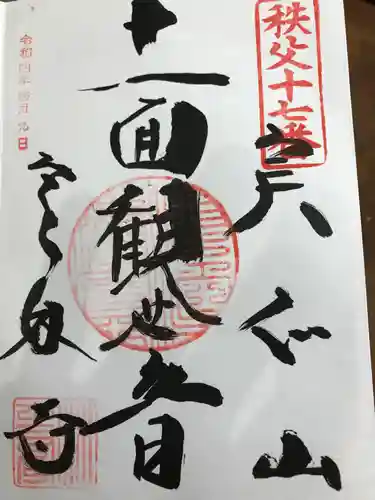 秩父十七番
実正山
十一面観世音
定林寺
令和四年四月九日